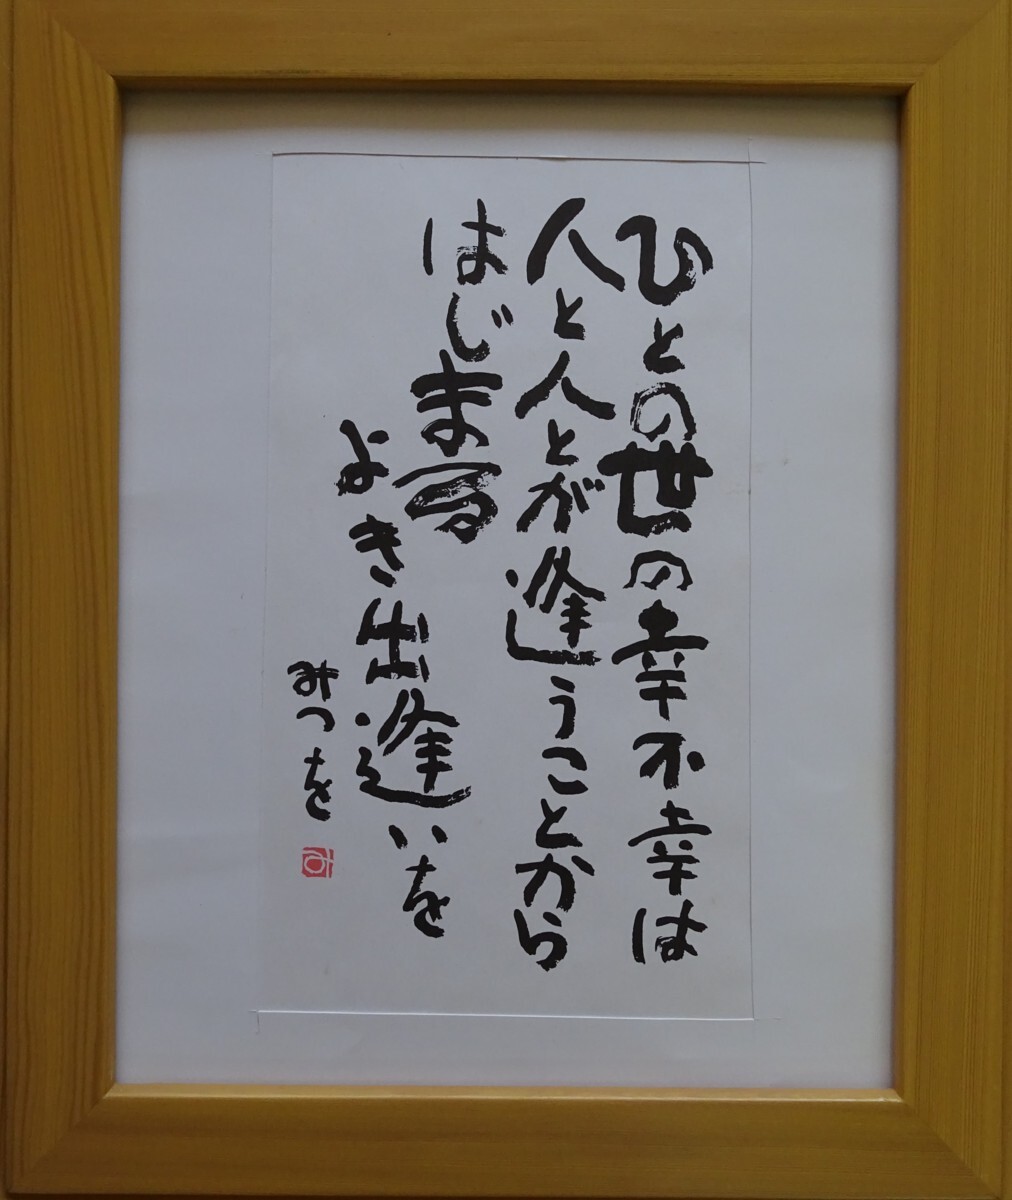 ひとの世の幸不幸は
人と人とが逢うことから
はじまる
よき出逢いを
みつを
み